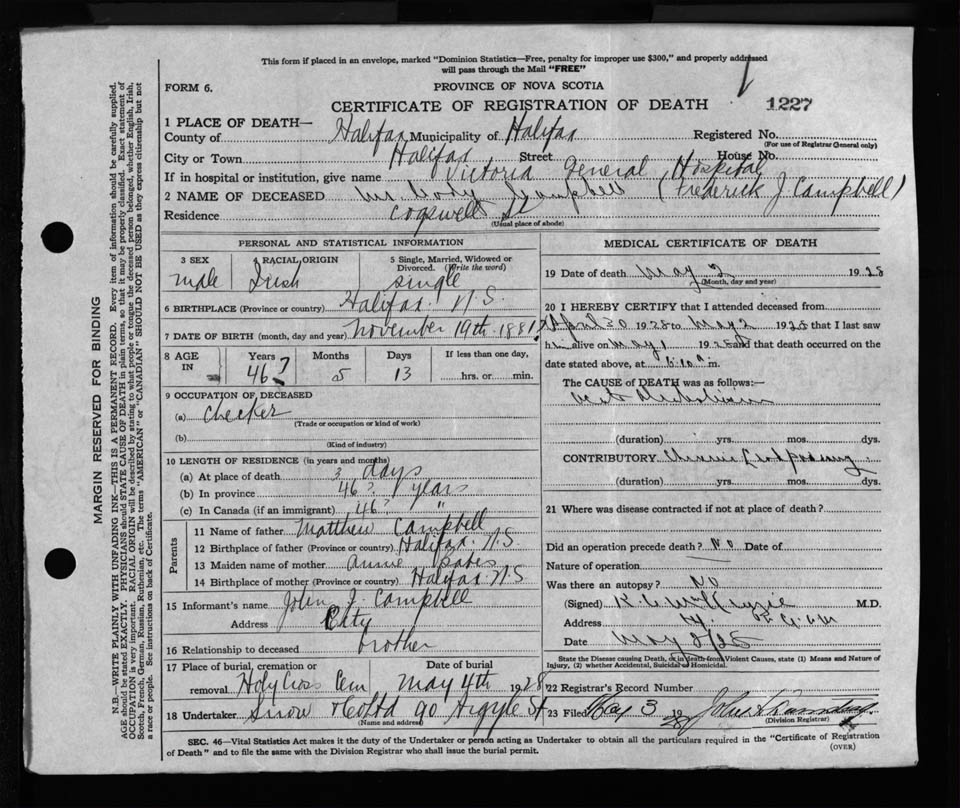 This form if placed in an envelope, marked "Dominion Statistics—Free, penalty for improper use $300," and properly addressed
will pass through the Mail "FREE"
FORM 6.
PROVINCE OF NOVA SCOTIA
CERTIFICATE OF REGISTRATION OF DEATH
1227
1 PLACE OF DEATH—
County of Halifax Municipality of Halifax Registered No.
(For use of Registrar General only)
City or Town Halifax Street House No.
If in hospital or institution, give name Victoria General Hospital
2 NAME OF DECEASED Mr. Campbell (Frederick J. Campbell)
Residence Cogswell St
(Usual place of abode)
PERSONAL AND STATISTICAL INFORMATION
3 SEX 4 RACIAL ORIGIN 5 Single, Married, Widowed or
Divorced. (Write the word)
male Irish single
6 BIRTHPLACE (Province or country) Halifax. N.S.
7 DATE OF BIRTH (month, day and year) November 19th. 1881?
8 AGE IN Years Months Days If less than one day,
46? 5 13 hrs. or min.
9 OCCUPATION OF DECEASED
(a) Checker
(Trade or occupation or kind of work)
(b)
(Kind of industry)
10 LENGTH OF RESIDENCE (in years and months)
(a) At place of death 3 days
(b) In province 46? years
(c) In Canada (if an immigrant) 46? "
Parents
11 Name of father Matthew Campbell
12 Birthplace of father (Province or country) Halifax. N.S
13 Maiden name of mother Annie
14 Birthplace of mother (Province or country) Halifax. N.S
15 Informant's name John J. Campbell
Address City
16 Relationship to deceased brother
17 Place of burial, cremation or Date of burial
removal Holy Cross Cem May 4th 1928
18 Undertaker Snow & Co Ltd 90 Argyle St
(Name and address)
MEDICAL CERTIFICATE OF DEATH
19 Date of death May 2 1928
(Month, day and year)
20 I HEREBY CERTIFY that I attended deceased from
April 30 1928 to May 2 1928 that I last saw
him alive on May 1 1928 and that death occurred on the
date stated above, at 6:10 a m.
The CAUSE of DEATH was as follows:—
(duration) yrs. mos. dys.
CONTRIBUTORY Chronic
(duration) yrs. mos. dys.
21 Where was disease contracted if not at place of death?
Did an operation precede death? No Date of
Nature of operation —
Was there an autopsy? No
(Signed) McKenzie M.D.
Address
Date May 2/28
State the Disease causing Death, or in death from Violent Causes, state (1) Means and Nature of
Injury, (2) whether Accidental, Suicidal or Homicidal.
22 Registrar's Record Number
23 Filed May 3 1928 John
(Division Registrar)
SEC. 46—Vital Statistics Act makes it the duty of the Undertaker or person acting as Undertaker to obtain all the particulars required in the "Certificate of Registration
of Death" and to file the same with the Division Registrar who shall issue the burial permit.
(OVER)
MARGIN RESERVED FOR BINDING
N.B.—WRITE PLAINLY WITH UNFADING INK—THIS IS A PERMANENT RECORD. Every item of information should be carefully supplied.
AGE should be stated EXACTLY. PHYSICIANS should STATE CAUSE OF DEATH in plain terms, so that it may be properly classified. Exact statement of
OCCUPATION is very important. RACIAL ORIGIN will be described by stating to what people or tongue the deceased person belonged, whether English, Irish,
Scotch, French, German, Russian, Ruthenian, etc. The terms "AMERICAN" or "CANADIAN" SHOULD NOT BE USED as they express citizenship but not
a race or people. See instructions on back of Certificate.